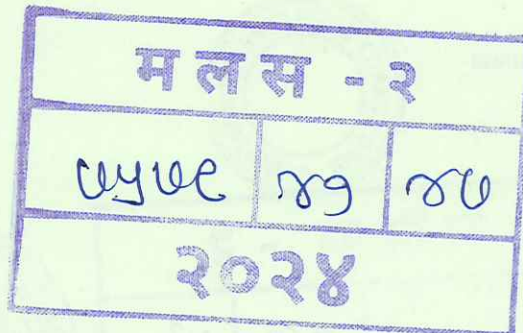 मलस - २
७५७९ ४१ ४७
२०२४